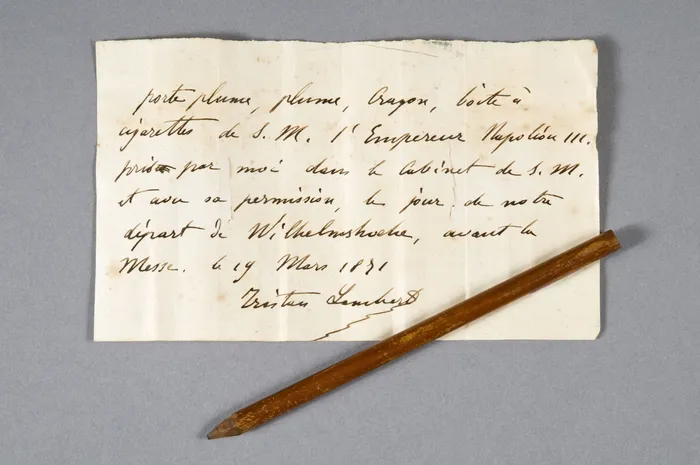 porte plume, plume, Crayon, boîte à
cigarettes de S. M. l'Empereur Napoléon III.
pris par moi dans le Cabinet de S. M.
et avec sa permission, le jour de notre
départ de Wilhelmshoehe, avant la
Messe. le 19 Mars 1871
Tristan Lambert